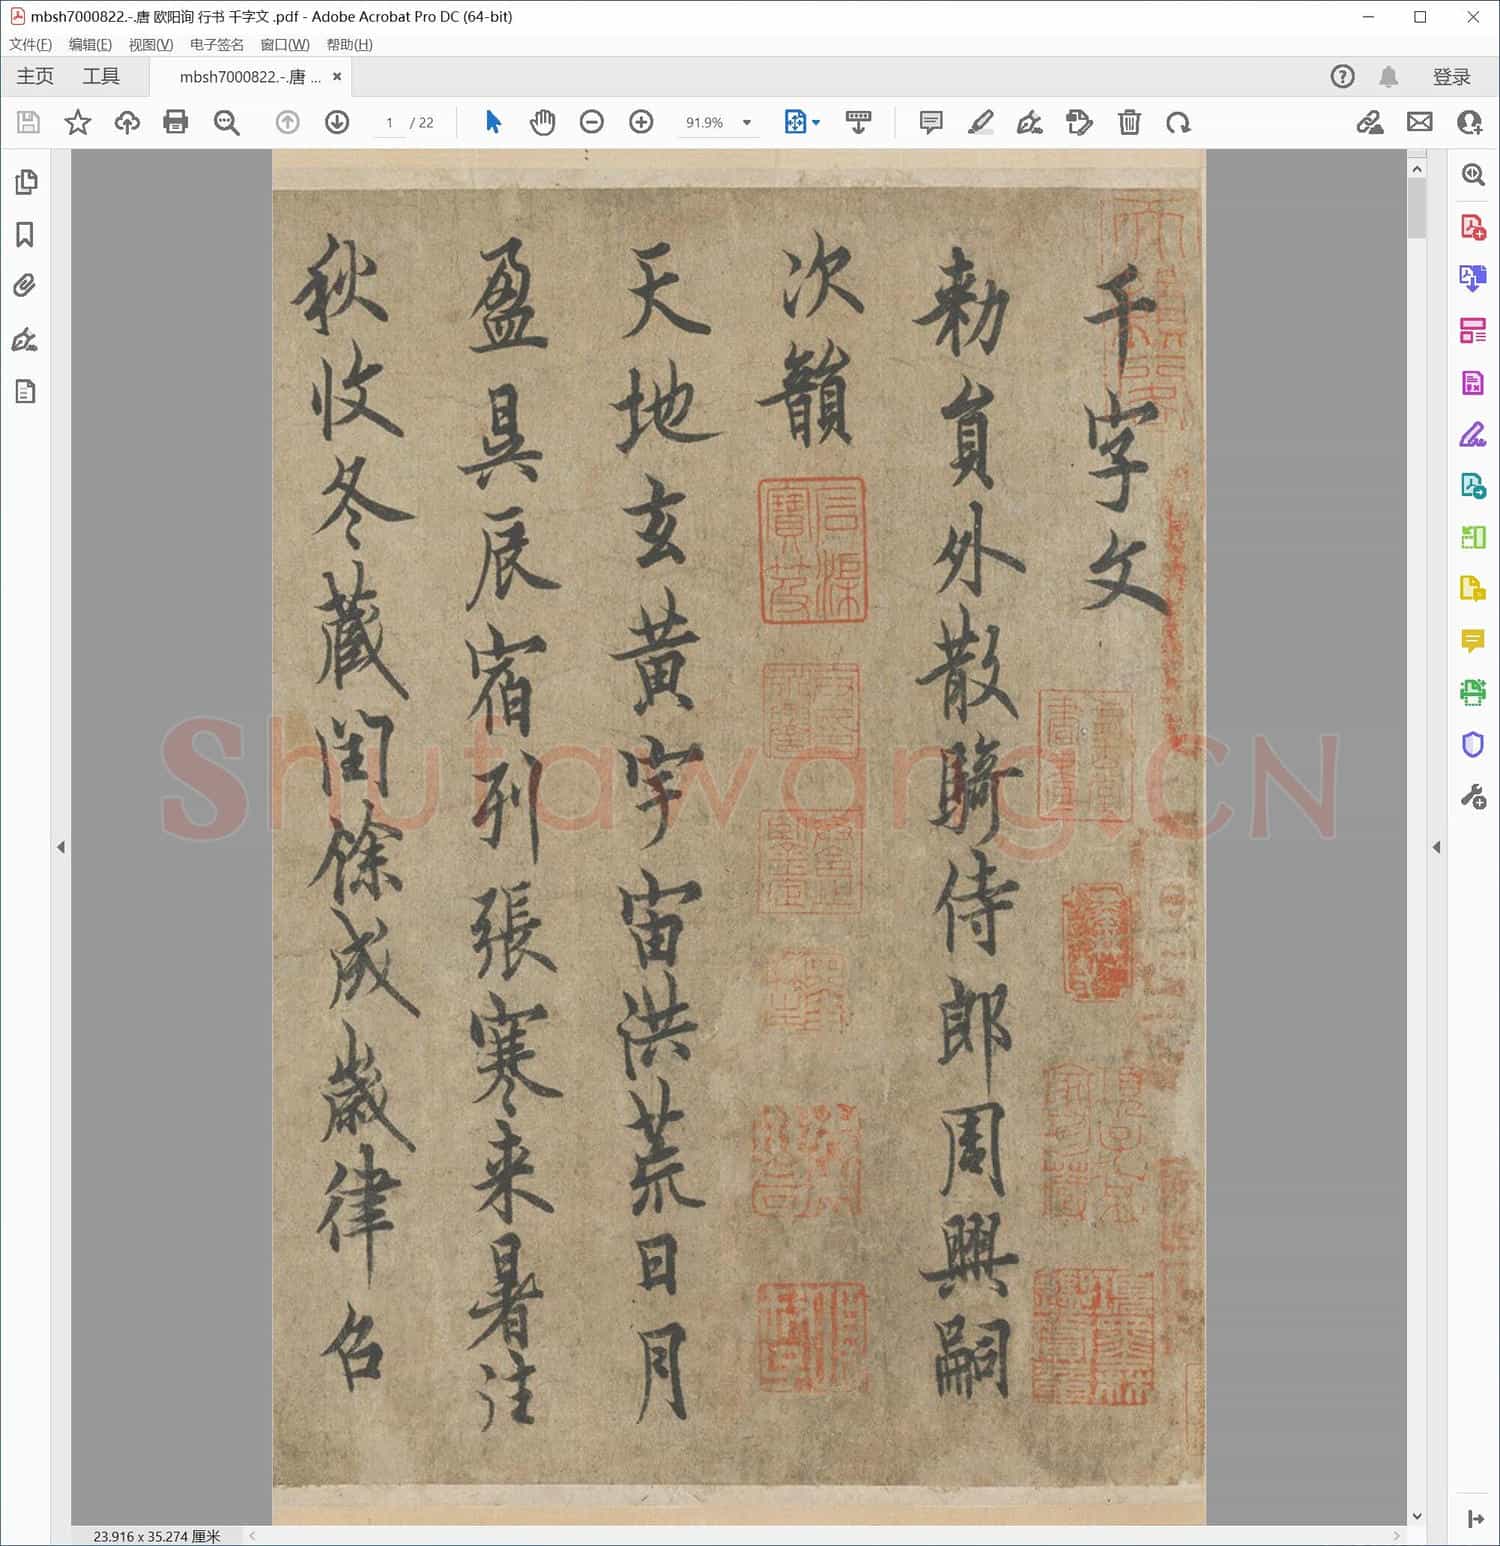 mbsh7000822.-.唐 欧阳询 行书 千字文 .pdf - Adobe Acrobat Pro DC (64-bit)
文件(F) 编辑(E) 视图(V) 电子签名 窗口(W) 帮助(H)
主页 工具 mbsh7000822.-.唐 ... × 登录
1 / 22 91.9%
千字文
勑員外散騎侍郎周興嗣
次韻
石渠寶笈
天地玄黃宇宙洪荒日月
盈昃辰宿列張寒来暑往
秋收冬藏閏餘成歲律召
Shufawang.CN
23.916 x 35.274 厘米